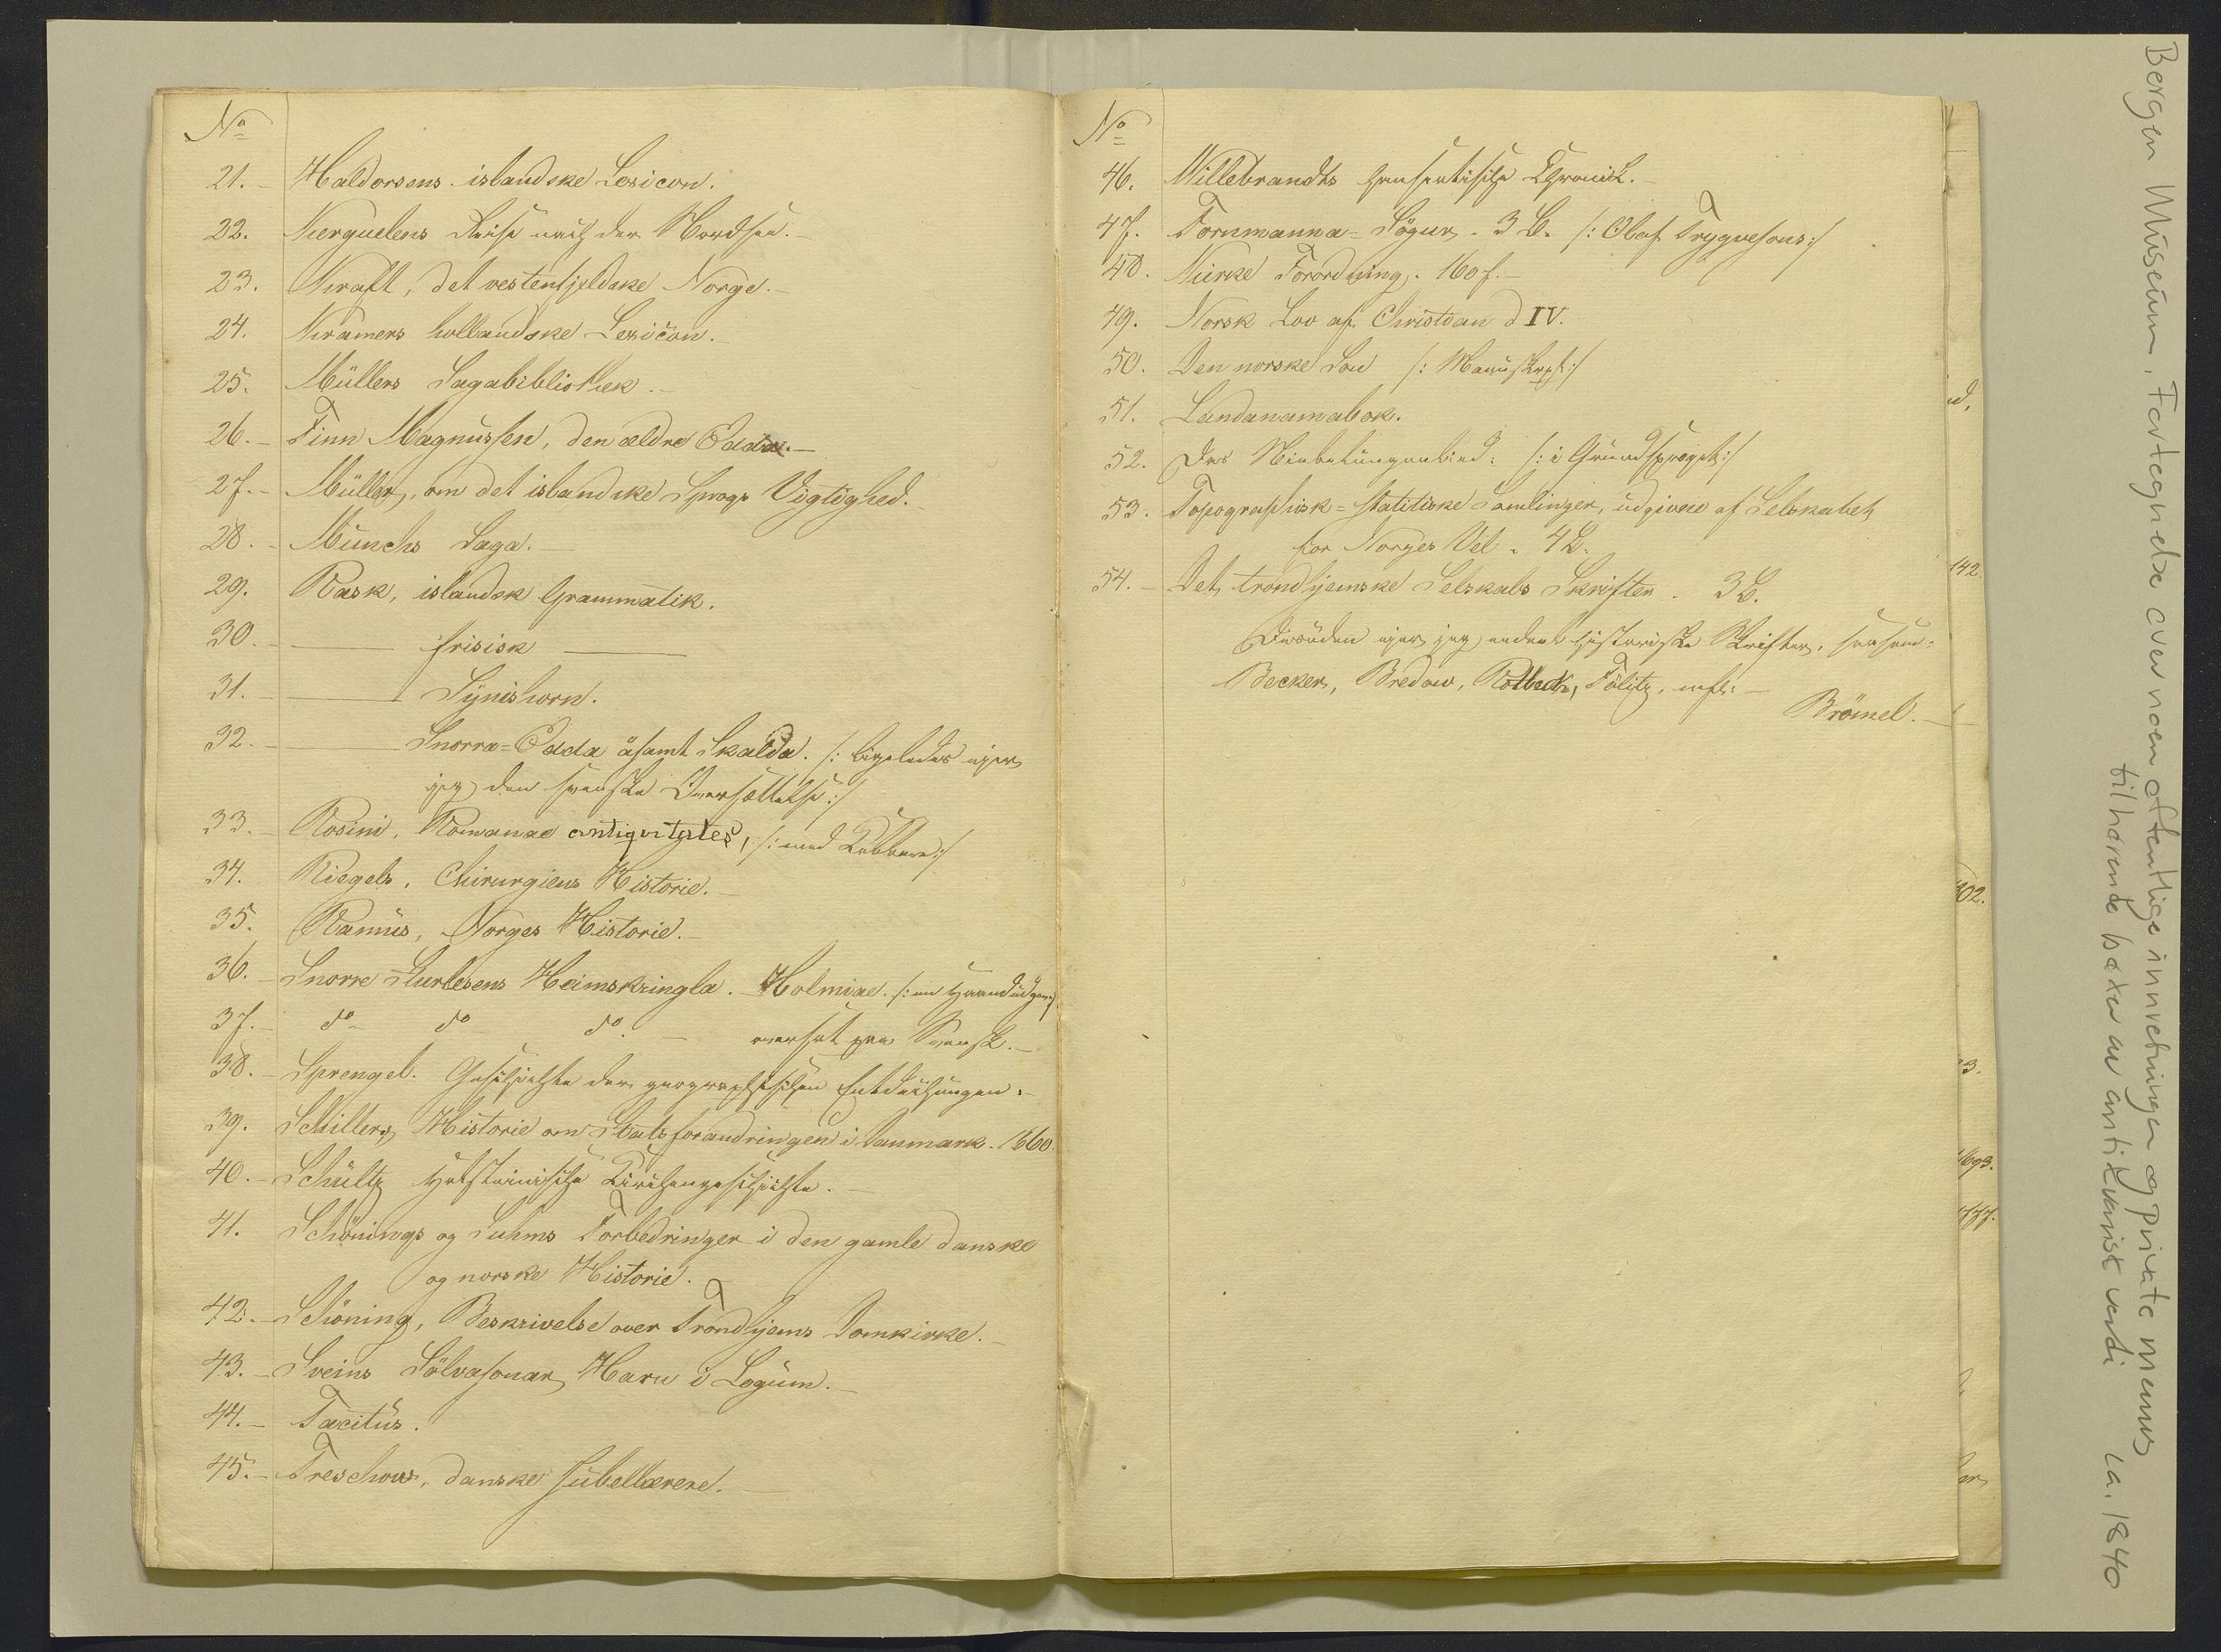 No
21. - Haldorsens islandske Lexicon.
22. Kerguelens Reise nach der Nordsee. -
23. Kraft, det vestenfjeldske Norge. -
24. Kramers hollandske Lexicon. -
25. Müllers Sagabibliothek. -
26. - Finn Magnussen, den ældre Edda. -
27. - Müller, om det islandske Sprogs Vigtighed. -
28. - Münchs Saga. -
29. Rask, islandsk Grammatik.
30. - —— frisisk ——
31. - —— Synishorn.
32. - —— Snorra=Edda ásamt Skalda. /: ligeledes ejer
jeg den svenske Oversættelse :/
33. - Rosini, Romanae antiquitates, /: med Kobbere :/
34. Riegels, Chirurgiens Historie. -
35. Ramus, Norges Historie. -
36. - Snorre Sturlesens Heimskringla. Holmiae. /: en Haandudgave :/
37. - do do do - oversat paa Svensk. -
38. - Sprengel. Geschichte der geographischen Entdeckungen. -
39. Schillers, Historie om Statsforandringen i Danmark. 1660.
40. - Schultz Holsteinische Kirchengeschichte. -
41. Schönings og Suhms Forbedringer i den gamle danske
og norske Historie. -
42. - Schöning, Beskrivelse over Trondhjems Domkirke. -
43. - Sveins Sölvasonar, Haru i Logum. -
44. - Tacitus.
45. - Treschows, danske Jubellærere. -
No
46. Willebrandts hanseatische Chronik. -
47. Fornmanna=Sögur. 3 B. /: Olaf Trygvesons :/
48. Kirke Forordning. 1607. -
49. Norsk Lov af Christian d IV.
50. Den norske Lov /: Manuskript :/
51. Landanamabok.
52. Das Niebelungenlied. /: i Grundsproget :/
53. Topographisk=statitiske Samlinger, udgivne af Selskabet
for Norges Vel. 4 B.
54. - Det trondhjemske Selskabs Skrifter. 3 B.
Desuden ejer jeg andre historiske Skrifter, saasom:
Becker, Bredow, Rotteck, Pölitz, mfl: -
Brömel. -
142.
302.
3.
1693.
1777.
Bergen Museum. Fortegnelse over noen offentlige innretninger og private menns
tilhørende bøker av antikvarisk verdi ca. 1840